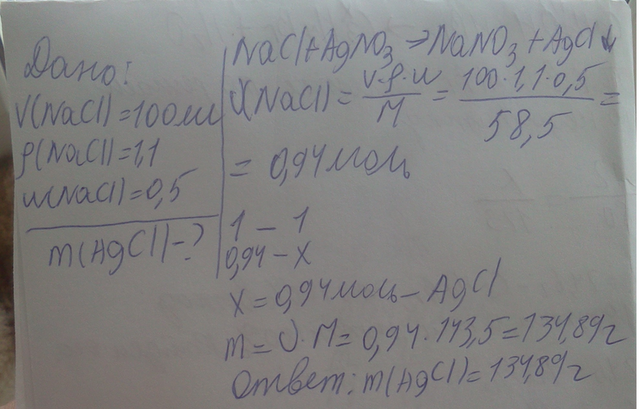 Дано:
V(NaCl) = 100 мл
ρ(NaCl) = 1,1
w(NaCl) = 0,5
m(AgCl) - ?
NaCl + AgNO₃ → NaNO₃ + AgCl↓
ν(NaCl) = V·ρ·w / M = 100·1,1·0,5 / 58,5 =
= 0,94 моль
1 – 1
0,94 – x
x = 0,94 моль – AgCl
m = ν·M = 0,94·143,5 = 134,89 г
Ответ: m(AgCl) = 134,89 г